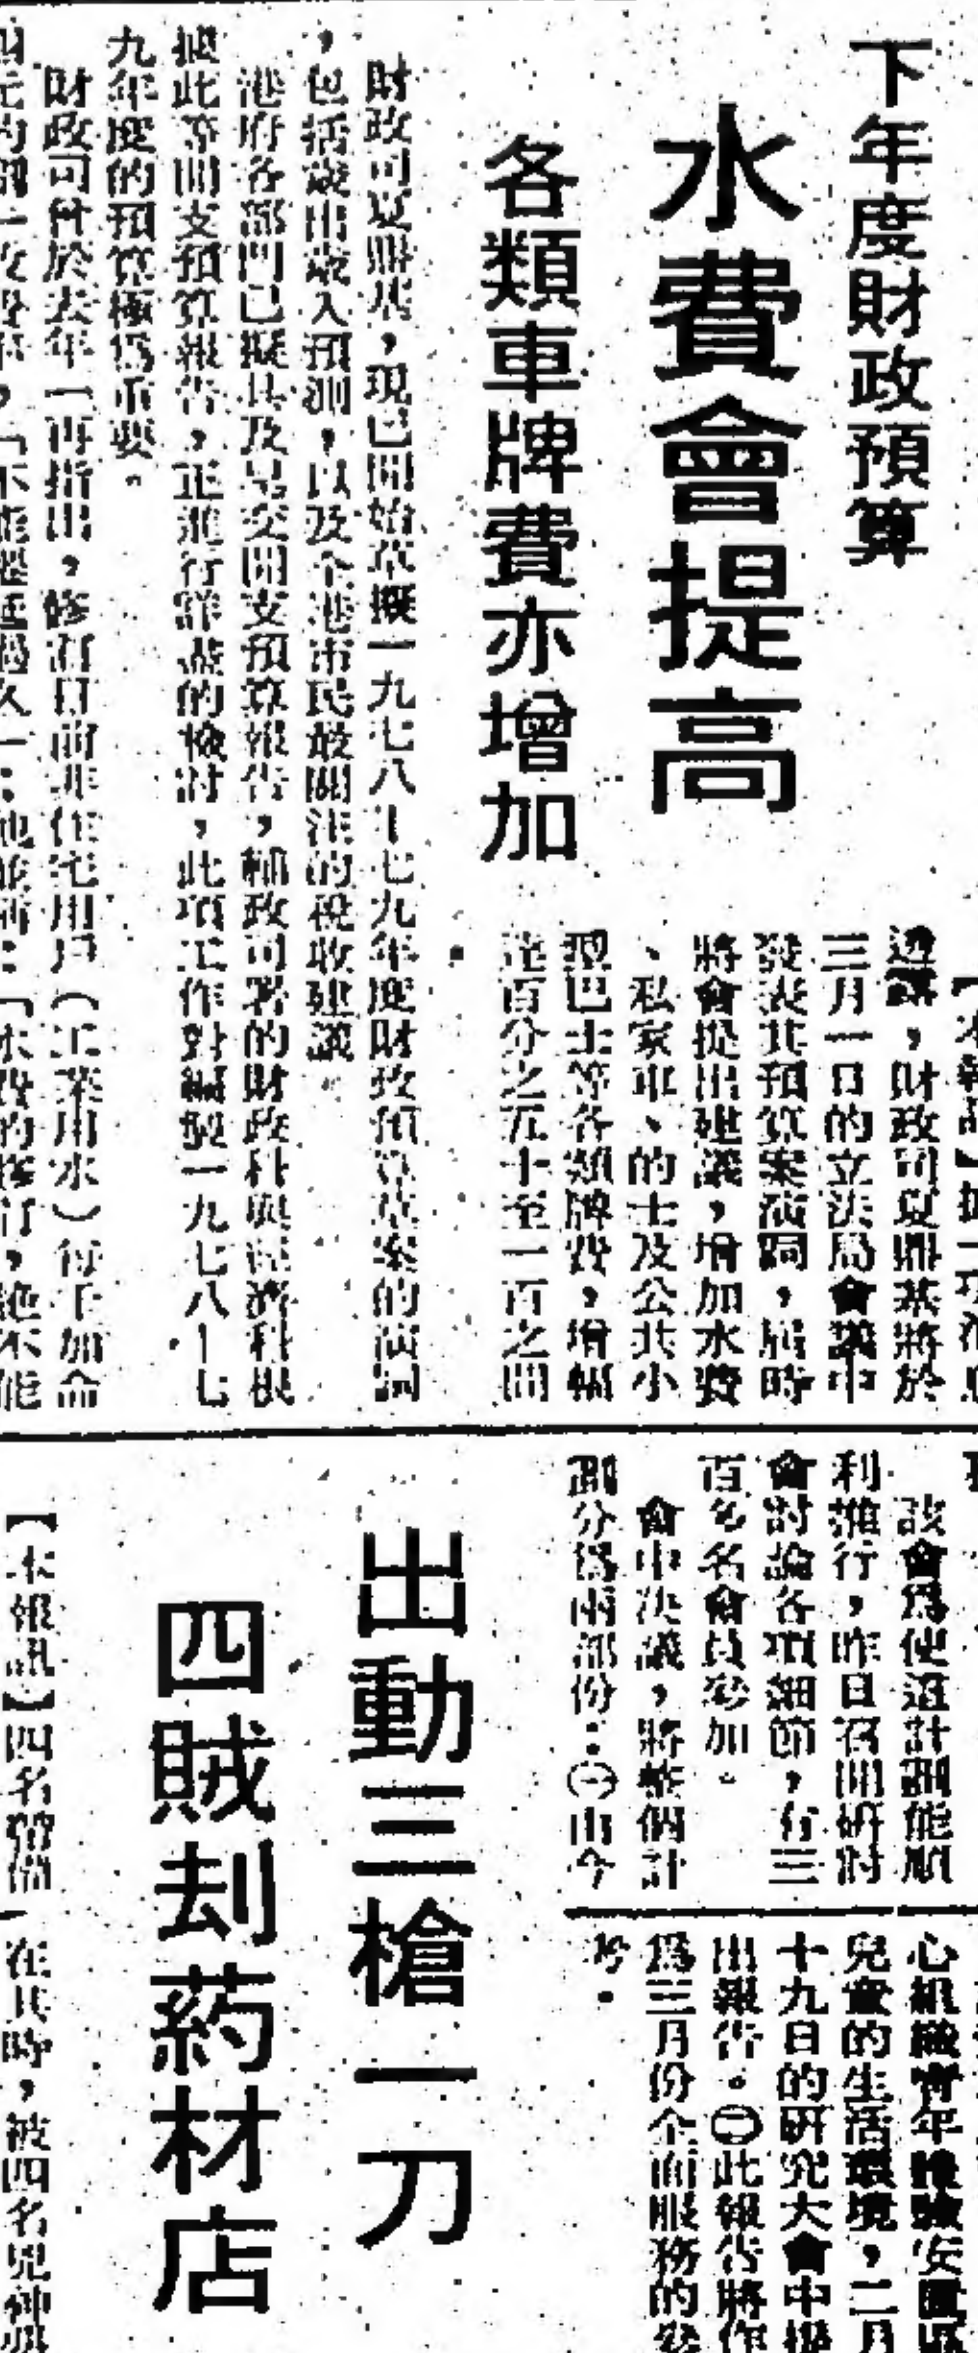 下年度財政預算
水費會提高
各類車牌費亦增加
【本報訊】據一項消息
透露，財政司夏鼎基將於
三月一日的立法局會議中
發表其預算案演詞，屆時
將會提出建議，增加水費
、私家車、的士及公共小
型巴士等各類牌費，增幅
達百分之五十至一百之間
。
財政司夏鼎基，現已開始草擬一九七八－七九年度財政預算草案的演詞
，包括歲出歲入預測，以及全港市民最關注的稅收建議。
港府各部門已擬具及呈交開支預算報告，輔政司署的財政科與經濟科根
據此等開支預算報告，正進行詳盡的檢討，此項工作對編製一九七八－七
九年度的預算極為重要。
財政司曾於去年一再指出，修訂目前非住宅用戶（工業用水）每千加侖
四元的劃一收費率，「不能遲延過久」；他並稱：「水費的修訂，絕不能
該會為使這計劃能順
利推行，昨日召開研討
會討論各項細節，有三
百多名會員參加。
會中決議，將整個計
劃分為兩部份：㊀由今
心組織青年體驗安置區
兒童的生活環境，二月
十九日的研究大會中提
出報告。㊁此報告將作
為三月份全面服務的參
考。
出動三槍一刀
四賊刦葯材店
【本報訊】四名帶備
在其時，被四名兇神惡